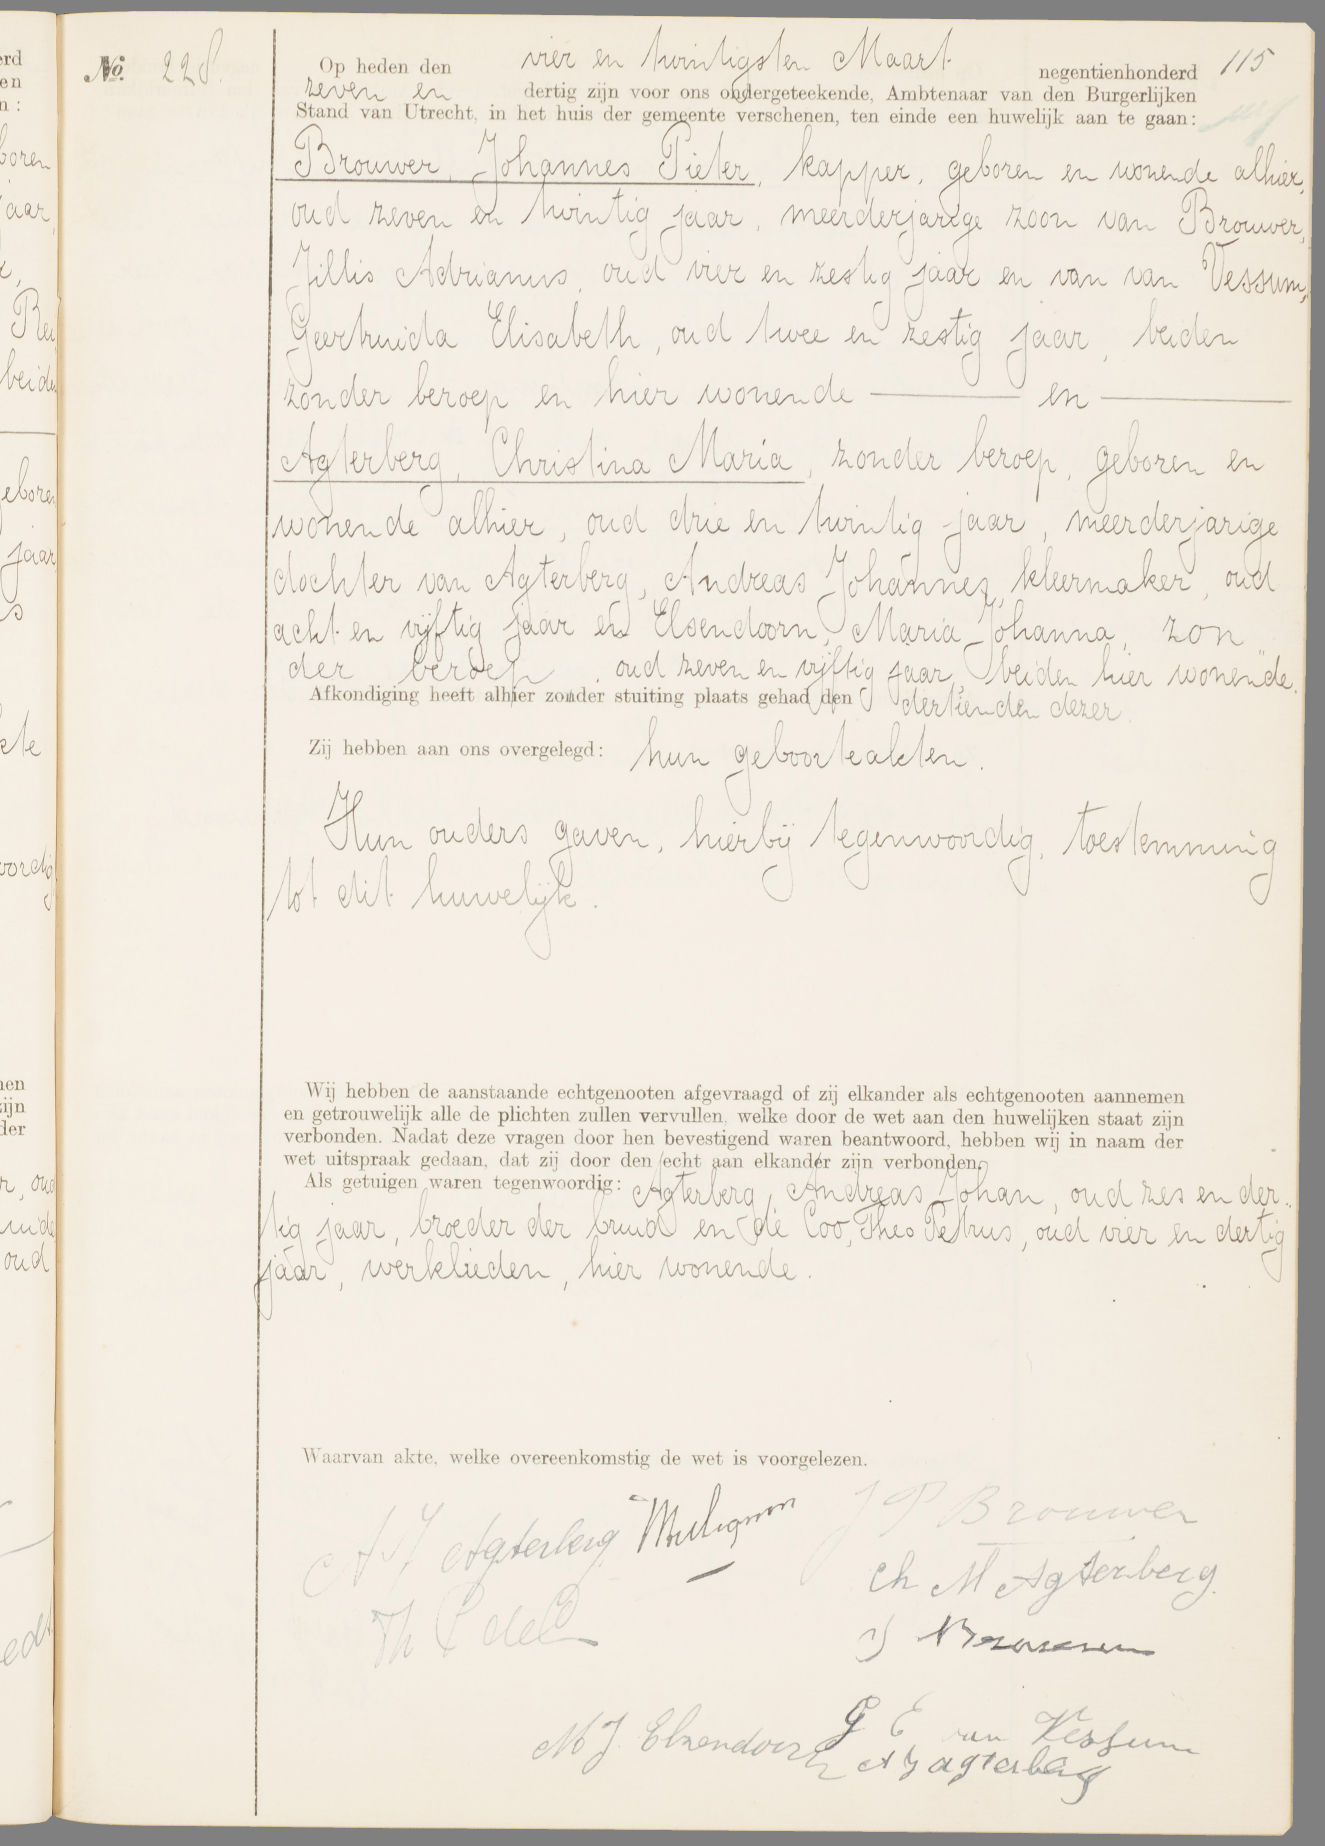 No. 228.
115
Op heden den vier en twintigsten Maart negentienhonderd
zeven en dertig zijn voor ons ondergeteekende, Ambtenaar van den Burgerlijken
Stand van Utrecht, in het huis der gemeente verschenen, ten einde een huwelijk aan te gaan:
Brouwer, Johannes Pieter, kapper, geboren en wonende alhier,
oud zeven en twintig jaar, meerderjarige zoon van Brouwer,
Jillis Adrianus, oud vier en zestig jaar en van van Vessum,
Geertruida Elisabeth, oud twee en zestig jaar, beiden
zonder beroep en hier wonende — en —
Agterberg, Christina Maria, zonder beroep, geboren en
wonende alhier, oud drie en twintig jaar, meerderjarige
dochter van Agterberg, Andreas Johannes, kleermaker, oud
acht en vijftig jaar en Elsendoorn, Maria Johanna, zon
der beroep, oud zeven en vijftig jaar, beiden hier wonende.
Afkondiging heeft alhier zonder stuiting plaats gehad den dertienden dezer.
Zij hebben aan ons overgelegd: hun geboorteakten.
Hun ouders gaven, hierbij tegenwoordig, toestemming
tot dit huwelijk.
Wij hebben de aanstaande echtgenooten afgevraagd of zij elkander als echtgenooten aannemen
en getrouwelijk alle de plichten zullen vervullen, welke door de wet aan den huwelijken staat zijn
verbonden. Nadat deze vragen door hen bevestigend waren beantwoord, hebben wij in naam der
wet uitspraak gedaan, dat zij door den echt aan elkander zijn verbonden.
Als getuigen waren tegenwoordig: Agterberg, Andreas Johan, oud zes en der
tig jaar, broeder der bruid en de Coo, Theo Petrus, oud vier en dertig
jaar, werklieden, hier wonende.
Waarvan akte, welke overeenkomstig de wet is voorgelezen.
J P Brouwer
A J Agterberg
Ch M Agterberg.
Th P de C
J Brouwer
G E van Vessum
M J. Elsendoorn
A J agterberg